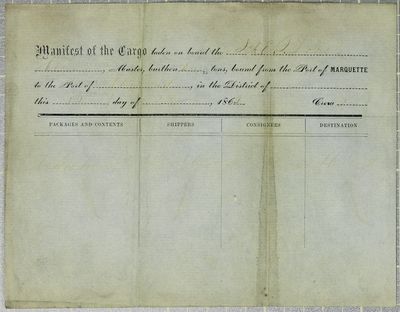 Manifest of the Cargo laden on board the
Master, burthen tons, bound from the Port of MARQUETTE
to the Port of , in the District of
this day of , 186 Crew
PACKAGES AND CONTENTS SHIPPERS CONSIGNEES DESTINATION